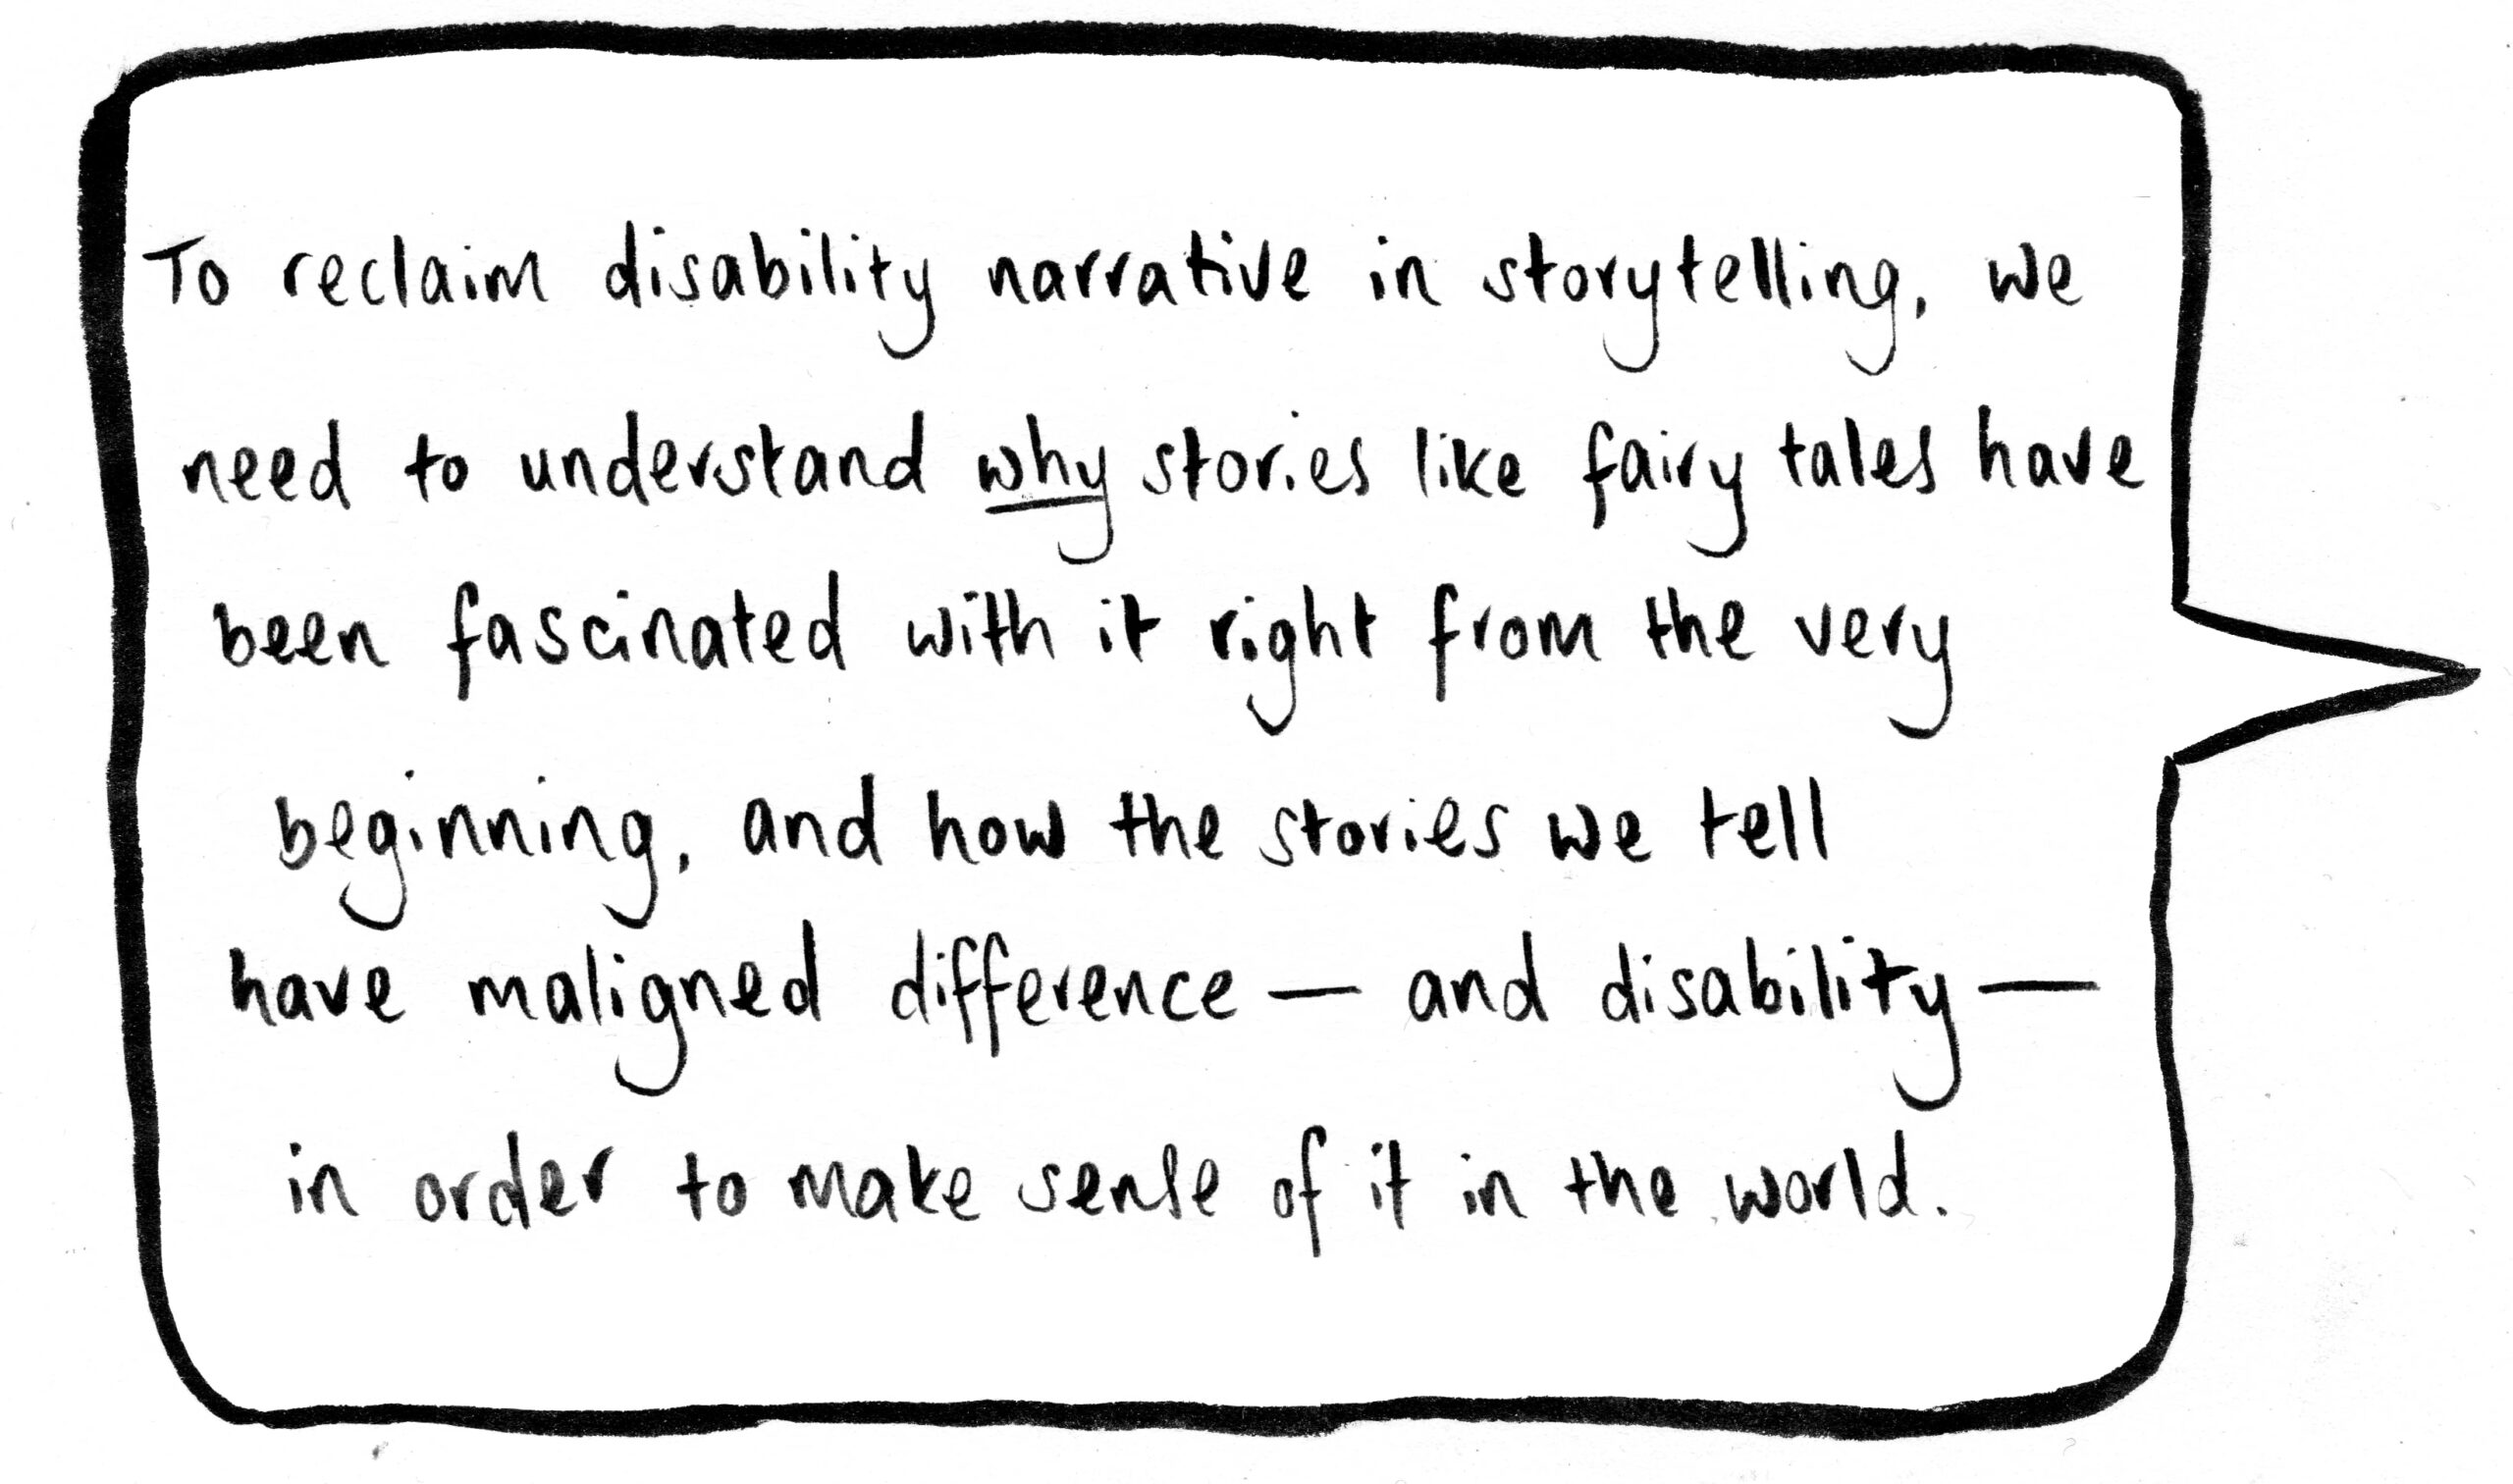 To reclaim disability narrative in storytelling, we
need to understand why stories like fairy tales have
been fascinated with it right from the very
beginning, and how the stories we tell
have maligned difference — and disability —
in order to make sense of it in the world.